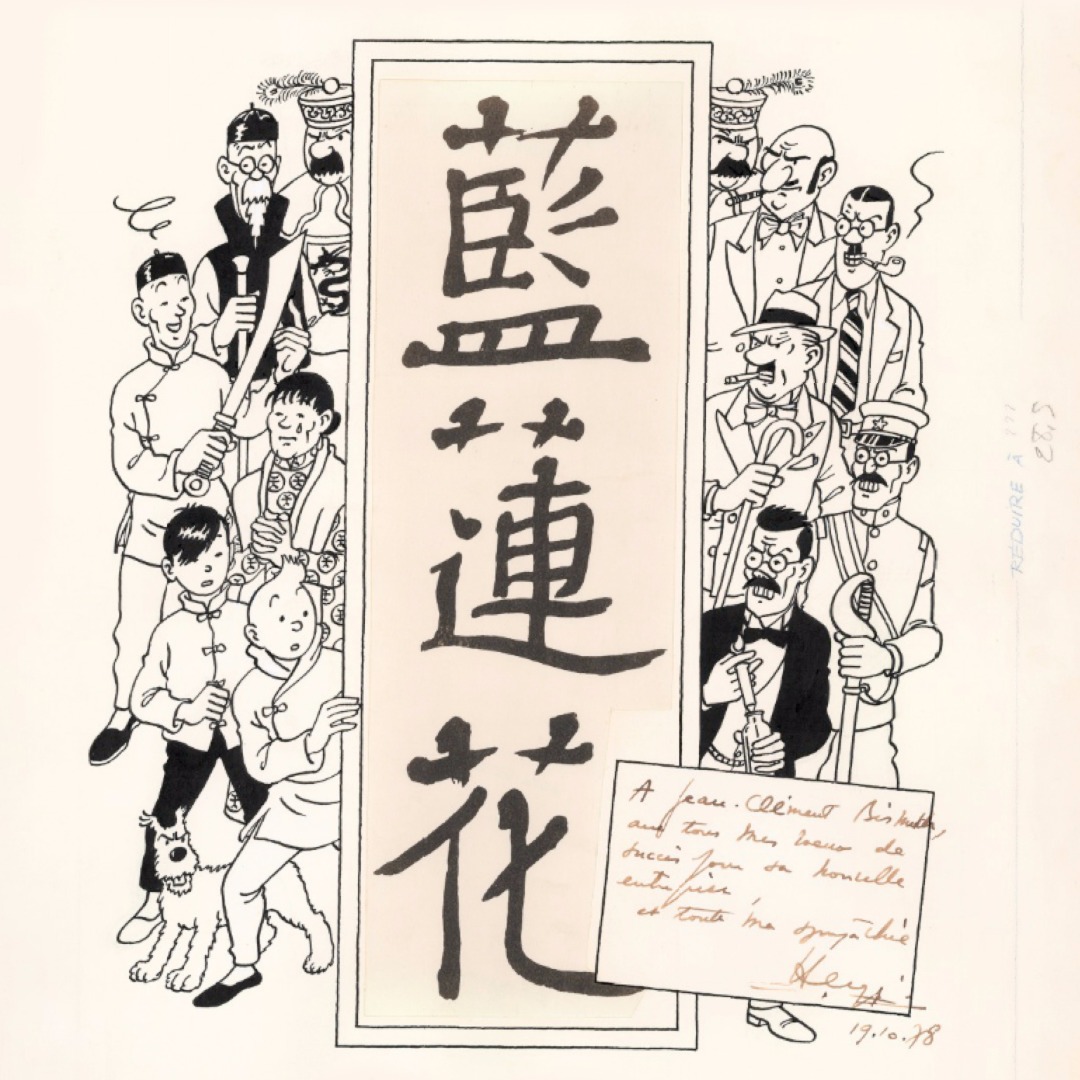 藍
蓮
花
A Jean-Clément
avec tous mes voeux de
succès pour sa nouvelle
entreprise,
et toute ma sympathie
Hergé
19.10.78
RÉDUIRE À